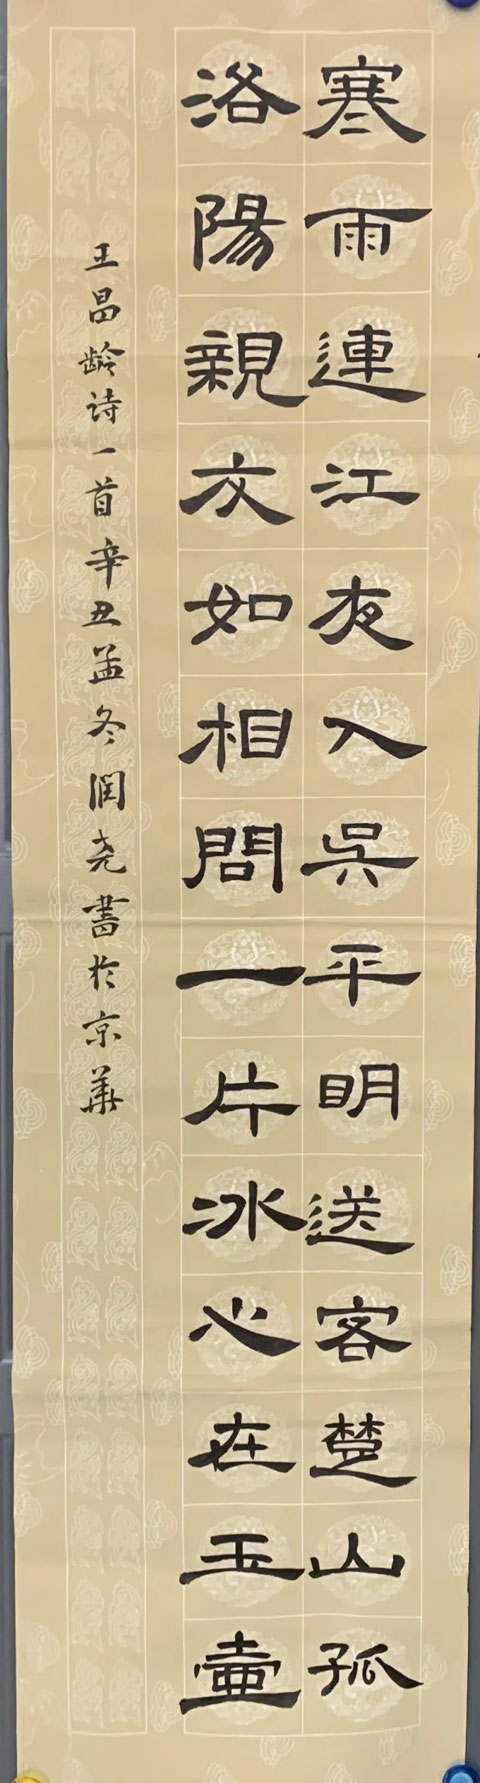 寒雨連江夜入吳平明送客楚山孤
洛陽親友如相問一片冰心在玉壺
王昌龄诗一首辛丑孟冬润尧書於京華